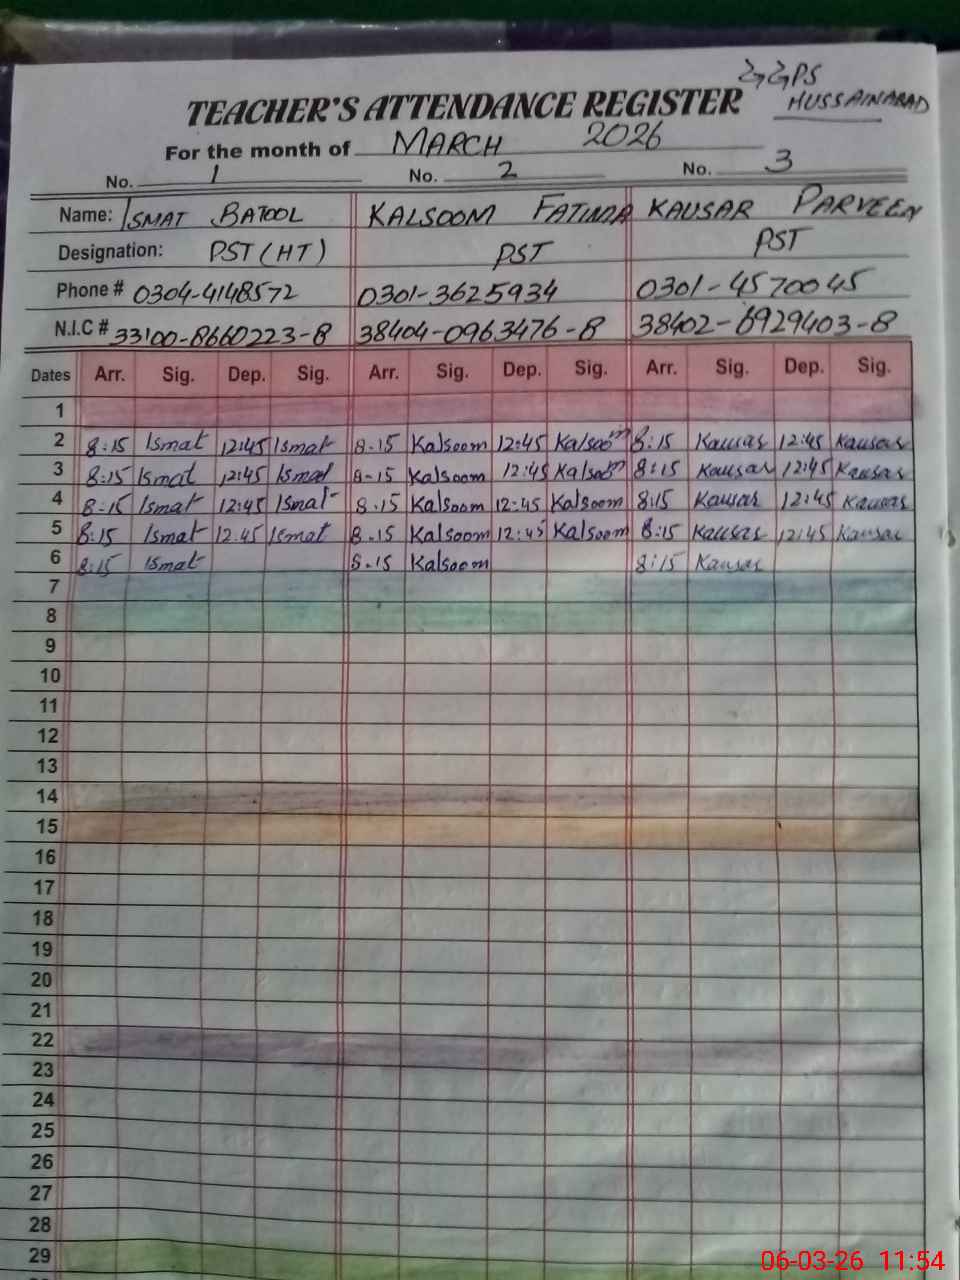 GGPS
HUSSAINABAD
TEACHER'S ATTENDANCE REGISTER
For the month of MARCH 2026
No. 1 No. 2 No. 3
Name: ISMAT BATOOL KALSOOM FATIMA KAUSAR PARVEEN
Designation: PST (HT) PST PST
Phone # 0304-4148572 0301-3625934 0301-4570045
N.I.C # 33100-8660223-8 38404-0963476-8 38402-6929403-8
Dates Arr. Sig. Dep. Sig. Arr. Sig. Dep. Sig. Arr. Sig. Dep. Sig.
1
2 8:15 Ismat 12:45 Ismat 8-15 Kalsoom 12:45 Kalsoom 8:15 Kausar 12:45 Kausar
3 8:15 Ismat 12:45 Ismat 8-15 Kalsoom 12:45 Kalsoom 8:15 Kausar 12:45 Kausar
4 8:15 Ismat 12:45 Ismat 8.15 Kalsoom 12:45 Kalsoom 8:15 Kausar 12:45 Kausar
5 8:15 Ismat 12.45 Ismat 8.15 Kalsoom 12:45 Kalsoom 8:15 Kausar 12:45 Kausar
6 8:15 Ismat 8.15 Kalsoom 8:15 Kausar
7
8
9
10
11
12
13
14
15
16
17
18
19
20
21
22
23
24
25
26
27
28
29
06-03-26 11:54